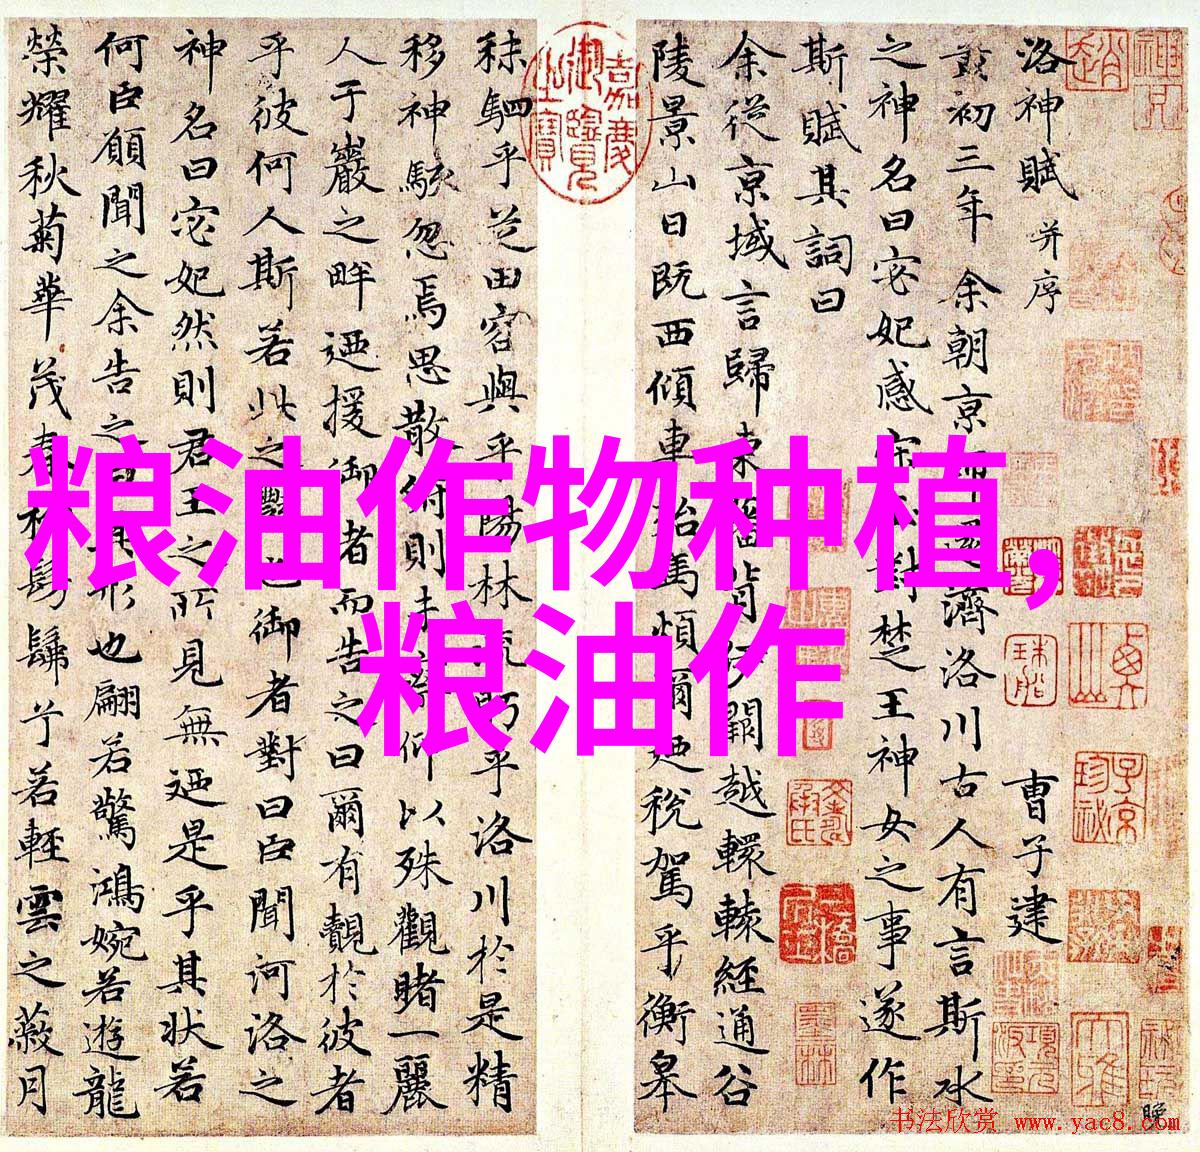 洛神賦 并序 曹子建
黃初三年余朝京師還濟洛川古人有言斯水
之神名曰宓妃感宋玉對楚王神女之事遂作
斯賦其詞曰
余從京域言歸東藩背伊闕越轘轅經通谷
陵景山日既西傾車殆馬煩爾迺稅駕乎蘅皋
嘉慶御覽之寶
秣駟乎芝田容與乎陽林流眄乎洛川於是精
移神駭忽焉思散俯則未察仰以殊觀睹一麗
人于巖之畔迺援御者而告之曰爾有覿於彼者
乎彼何人斯若此之豔也御者對曰臣聞河洛之
神名曰宓妃然則君王之所見無迺是乎其状若
何臣願聞之余告之曰其形也翩若驚鴻婉若遊龍
榮耀秋菊華茂春松髣髴兮若輕雲之蔽月
粮油作物种植,
粮油作
书法欣赏 www.yac8.com